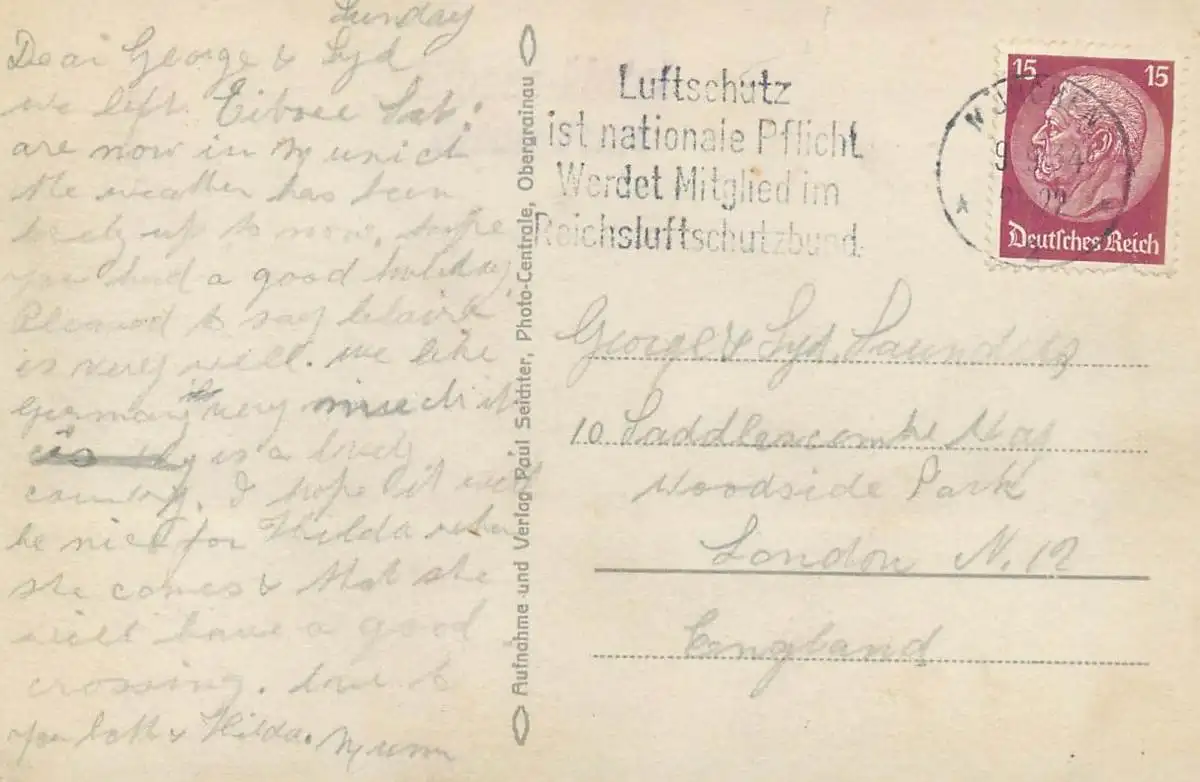 Sunday
Dear George & Syd
we left Eibsee Sat.
are now in Munich
the weather has been
lovely up to now, hope
you had a good holiday
Pleased to say Claire
is very well. we like
Germany very much it
is a lovely
country. I hope it will
be nice for Hilda when
she comes & that she
will have a good
crossing. love to
you both & Hilda. Mum
Aufnahme und Verlag Paul Seichter, Photo-Centrale, Obergrainau
Luftschutz
ist nationale Pflicht
Werdet Mitglied im
Reichsluftschutzbund.
MÜNCHEN
9.9.34
22
15 15
Deutsches Reich
George & Syd. Saunders
10 Saddlescombe Way
Woodside Park
London N.12
England